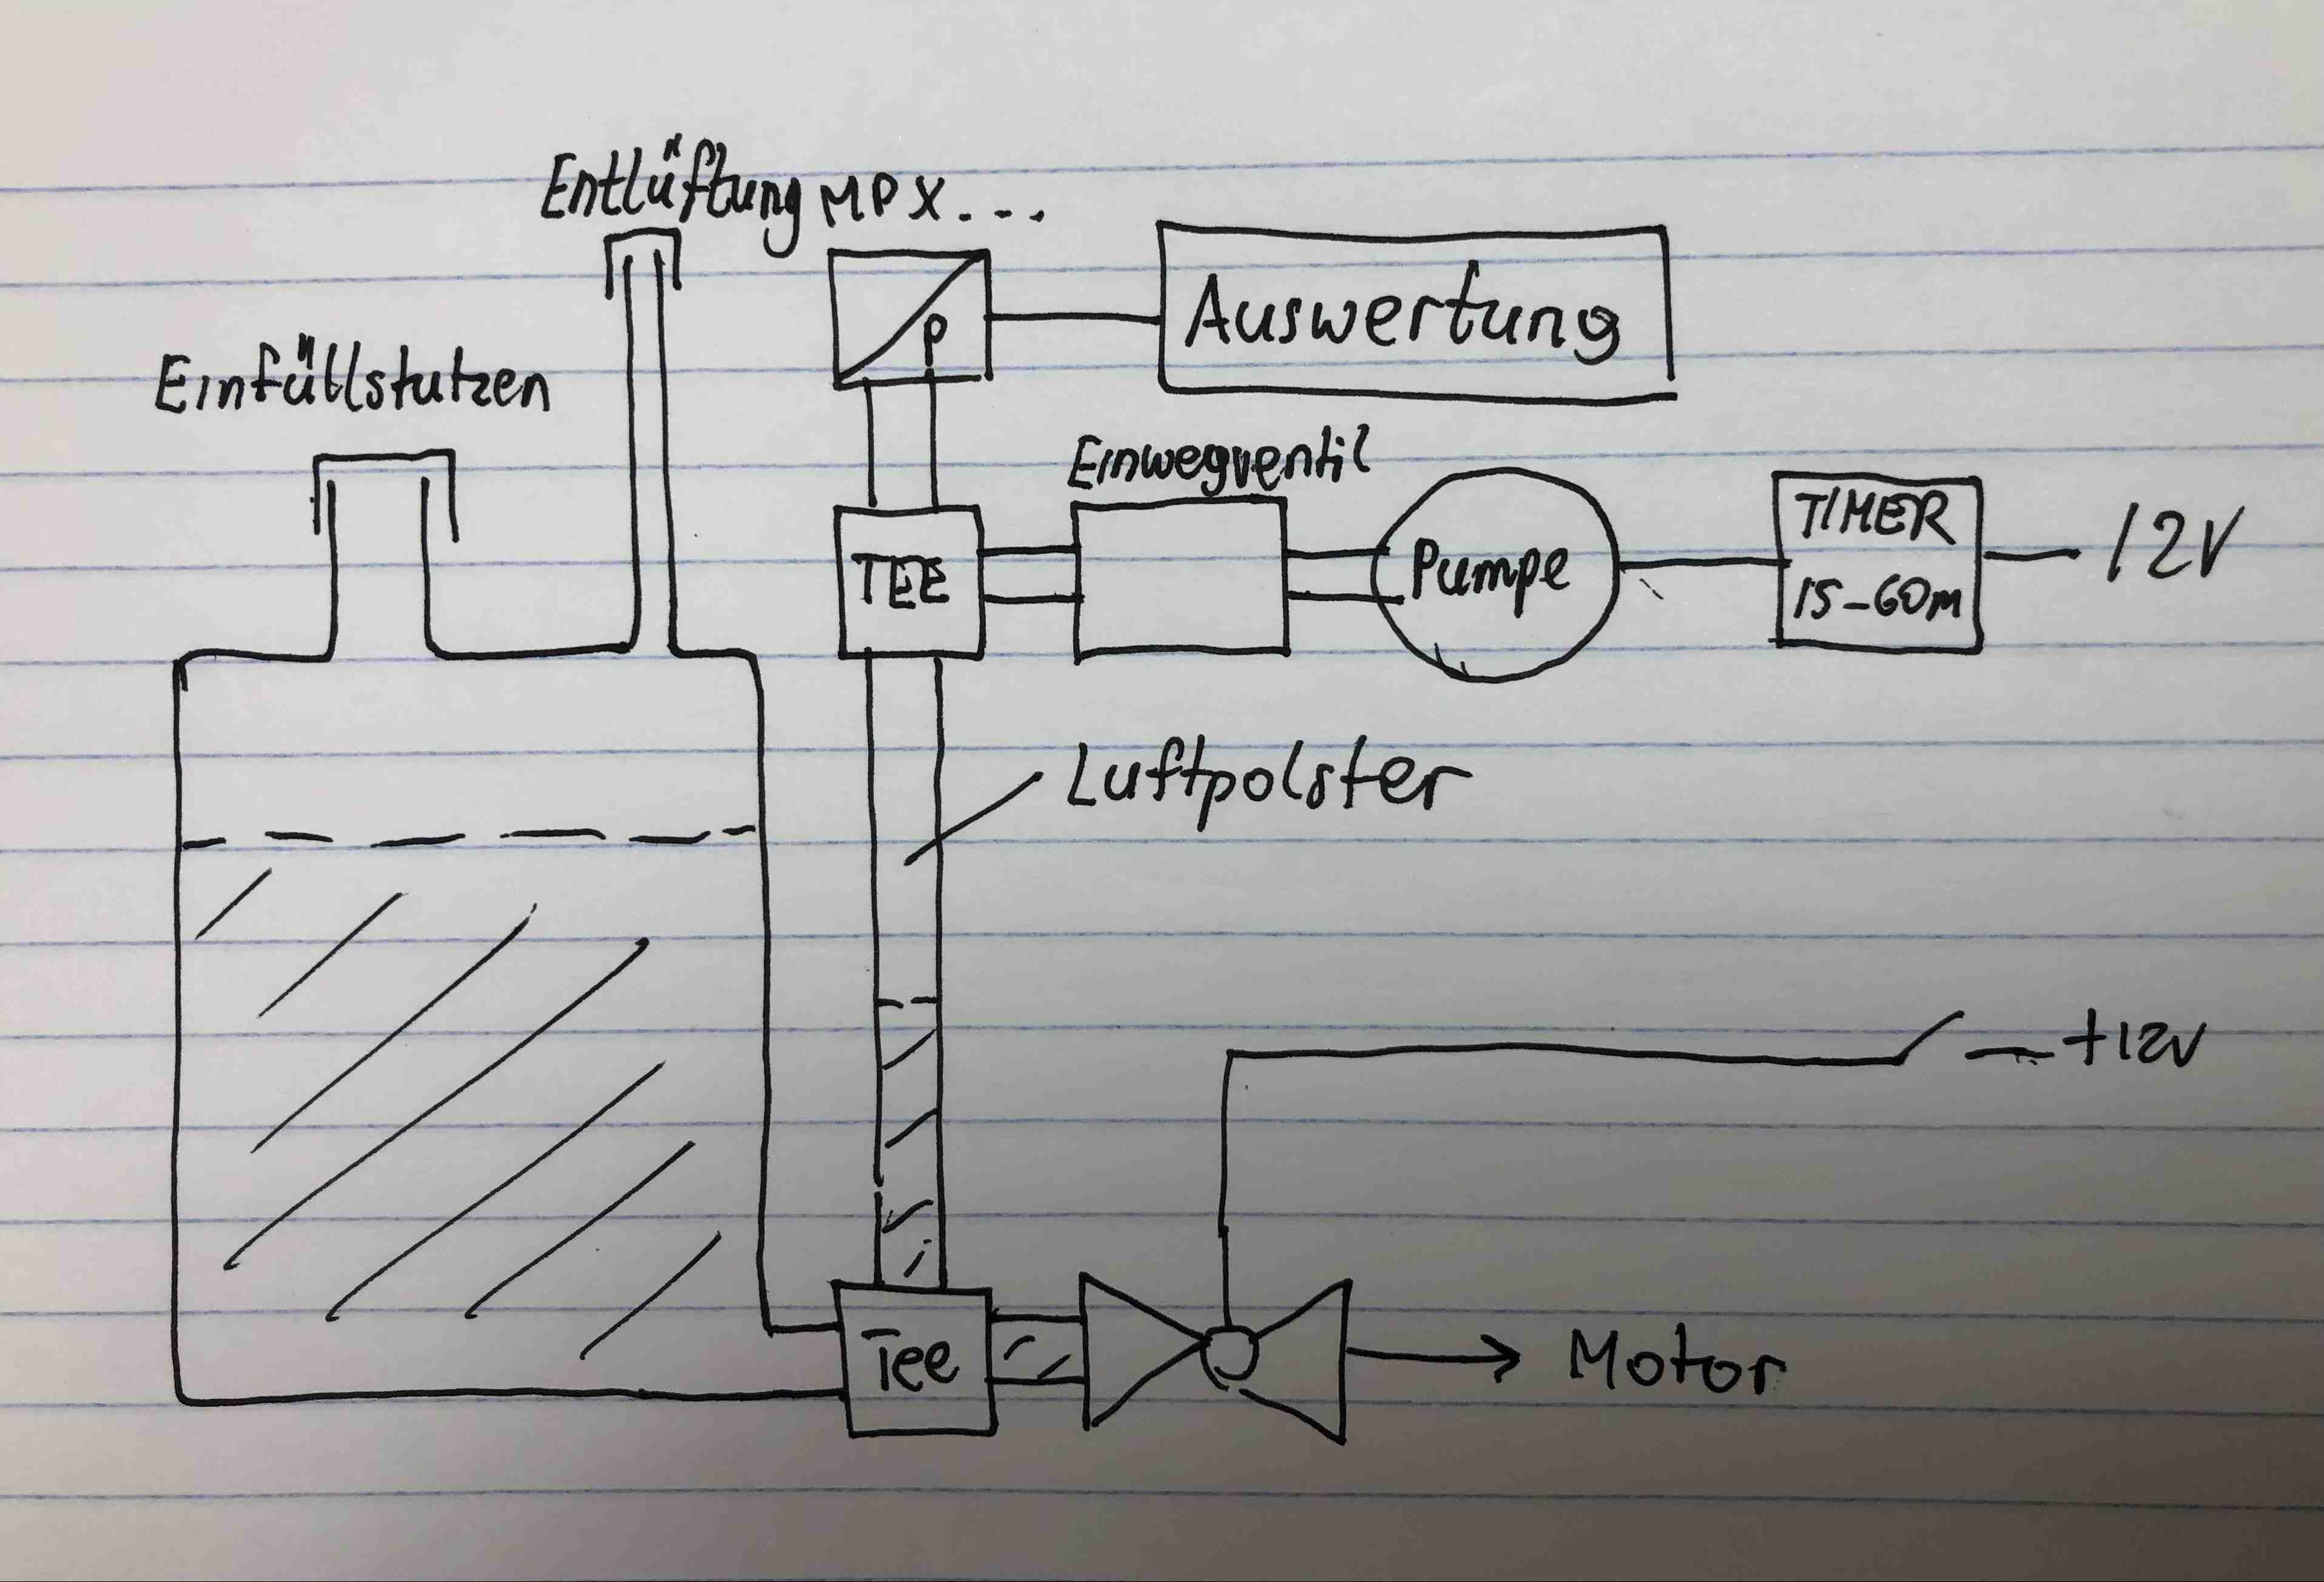 Entlüftung MPX...
Einfüllstutzen
p
Auswertung
Einwegventil
TEE
Pumpe
TIMER
15-60m
12V
Luftpolster
+12V
Tee
Motor